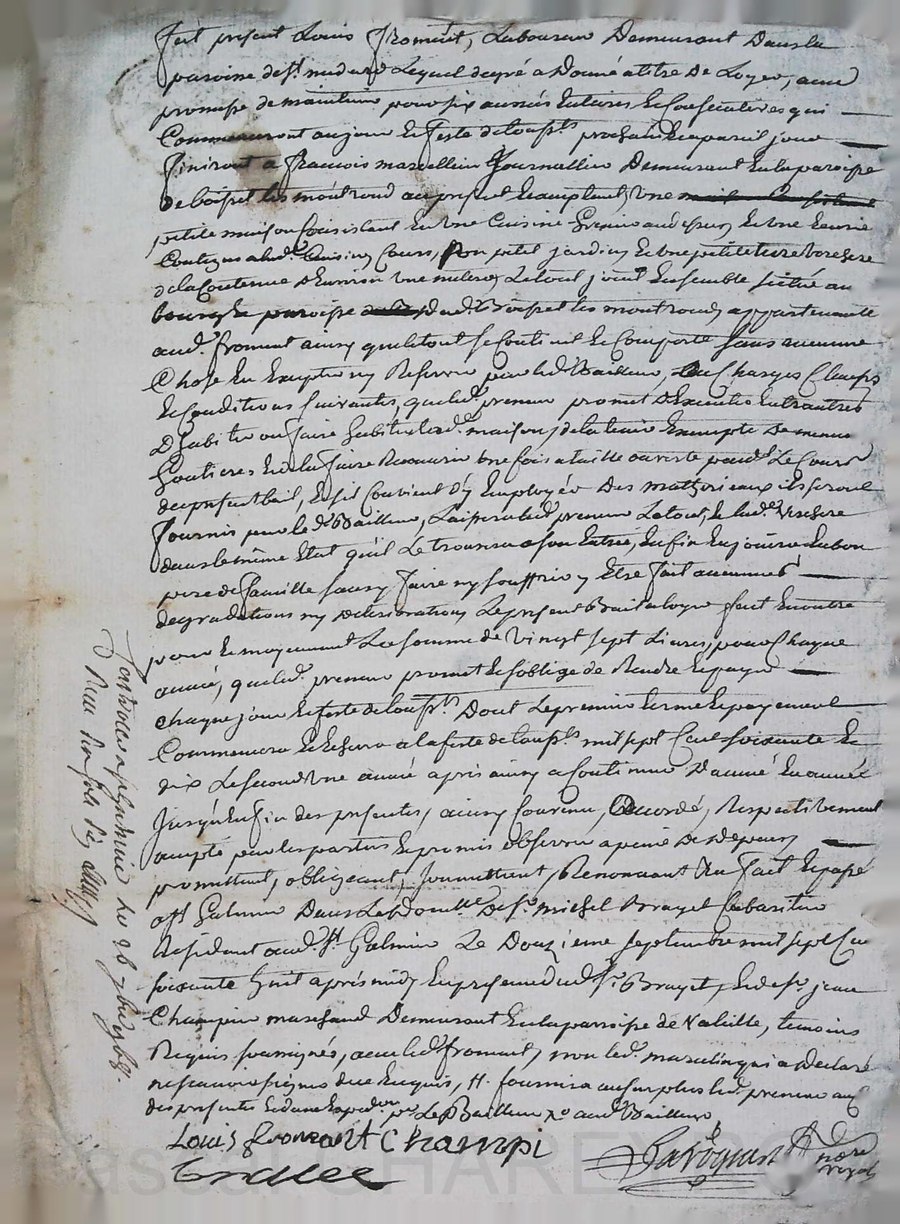 fut présent Louis froment, Laboureur Demeurant Dans la
paroisse de st. medard Lequel de gré a Donné a titre De Loyer, avec
promesse de maintenir pour six années Entieres Et Consecutives qui
Commenceront au jour Et feste de toussts prochain Et a pareil jour
finiront a francois marcellin Journallier Demeurant En la paroisse
de boisset les montrond au present Et acceptant, Une
petite maison Consistant En Une Cuisine Grenier au dessus Et Une Ecurie
Contigue a lad. Cuisine, Cour, Un petit jardin, Et Une petite terre Verchere
de la Contenue D'Environ Une Le tout joint Ensemble scitué au
bourg Et paroisse dud. Boisset les montrond, appartenants
aud. froment ainsy que le tout se Contient Et Comporte sans aucune
Chose En Excepter ny Reserver pour led. Bailleur, aux Charges Clauses
Et Conditions suivantes, que led. preneur promet D'Executer Entr'autres
D'habiter ou faire habiter lad. maison, de la tenir Exempte De menus
Goutieres En la faire Recouvrir Une fois a taille ouverte pendt Le Cours
du present bail, Et s'il Convient d'y Employer Des matheriaux ils seront
fournis par le d. Bailleur, Laissera led. preneur Le tout, Et lad. Verchere
dans le même Etat qu'il Le trouvera a son Entrée, Enfin En jouira En bon
pere de famille sans y faire ny souffrir y Etre fait aucunes
degradations ny Deteriorations, Le present Bail a loyer fait En outre
pour Et moyennant La somme de Vingt sept Livres, pour Chaque
année, que led. preneur promet Et s'oblige de Rendre Et payer
chaque jour Et feste de toussts. Dont Le premier terme Et payement
Commencera Et Se fera a la feste de toussts mil sept Cent soixante Et
dix Le second Une année apres ainsy a Continuer D'année En année
Jusqu'En fin des presentes, ainsy Convenu, accordé, Respectivement
accepté par les parties Et promis observer a peine De Depens,
promettant, obligeant, soumettant, Renonceant &a fait Et passé
a st Galmier Dans Le Domlle De sr. michel Brayet Cabaretier
Residant aud. st. Galmier Le Douzieme septembre mil sept Cent
soixante huit après midy En presence dud. sr. Brayet, Et de sr. jean
Champier marchand Demeurant En la parroisse de Valeille, temoins
Requis soussignés, avec led. froment, non led. marcellin qui a Declaré
ne scavoir signer de ce Enquis, fournira au surplus led. preneur
des presentes Et d'une Expedon pr Le Bailleur aud. Bailleur
Louis froment Champi
notre
royal
Controllé a st galmier le 7bre 1768.
Reçu